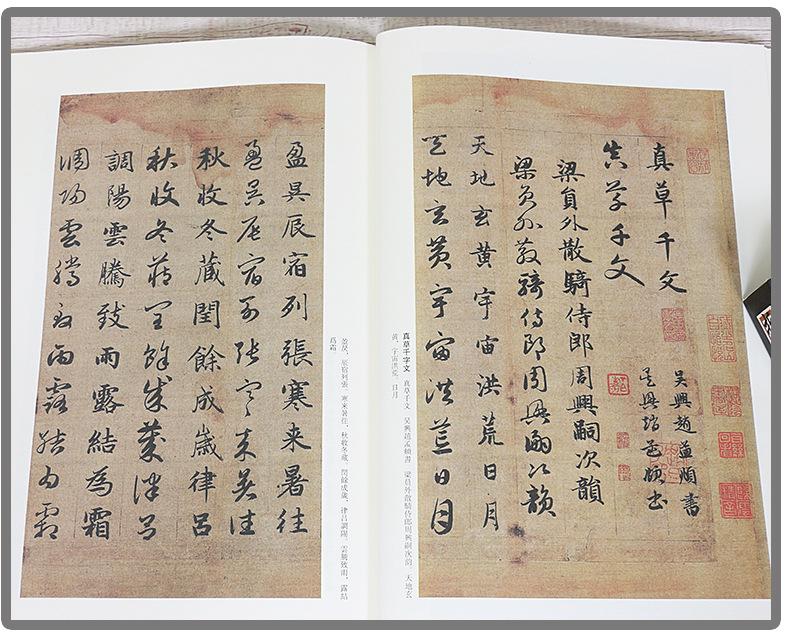 真草千文
吴興趙孟頫書
真草千文
吴興趙孟頫書
梁員外散騎侍郎周興嗣次韻
梁員外散騎侍郎周興嗣次韻
天地玄黄宇宙洪荒日月
天地玄黄宇宙洪荒日月
真草千字文 真草千文 吴興趙孟頫書 梁員外散騎侍郎周興嗣次韵 天地玄
黄，宇宙洪荒。日月
盈昃辰宿列張寒来暑往
盈昃辰宿列張寒来暑往
秋收冬藏閏餘成歲律吕
秋收冬藏閏餘成歲律吕
調陽雲騰致雨露結為霜
調陽雲騰致雨露結為霜
盈昃，辰宿列張。寒來暑往，秋收冬藏。閏餘成歲，律吕調陽。雲騰致雨，露結
爲霜